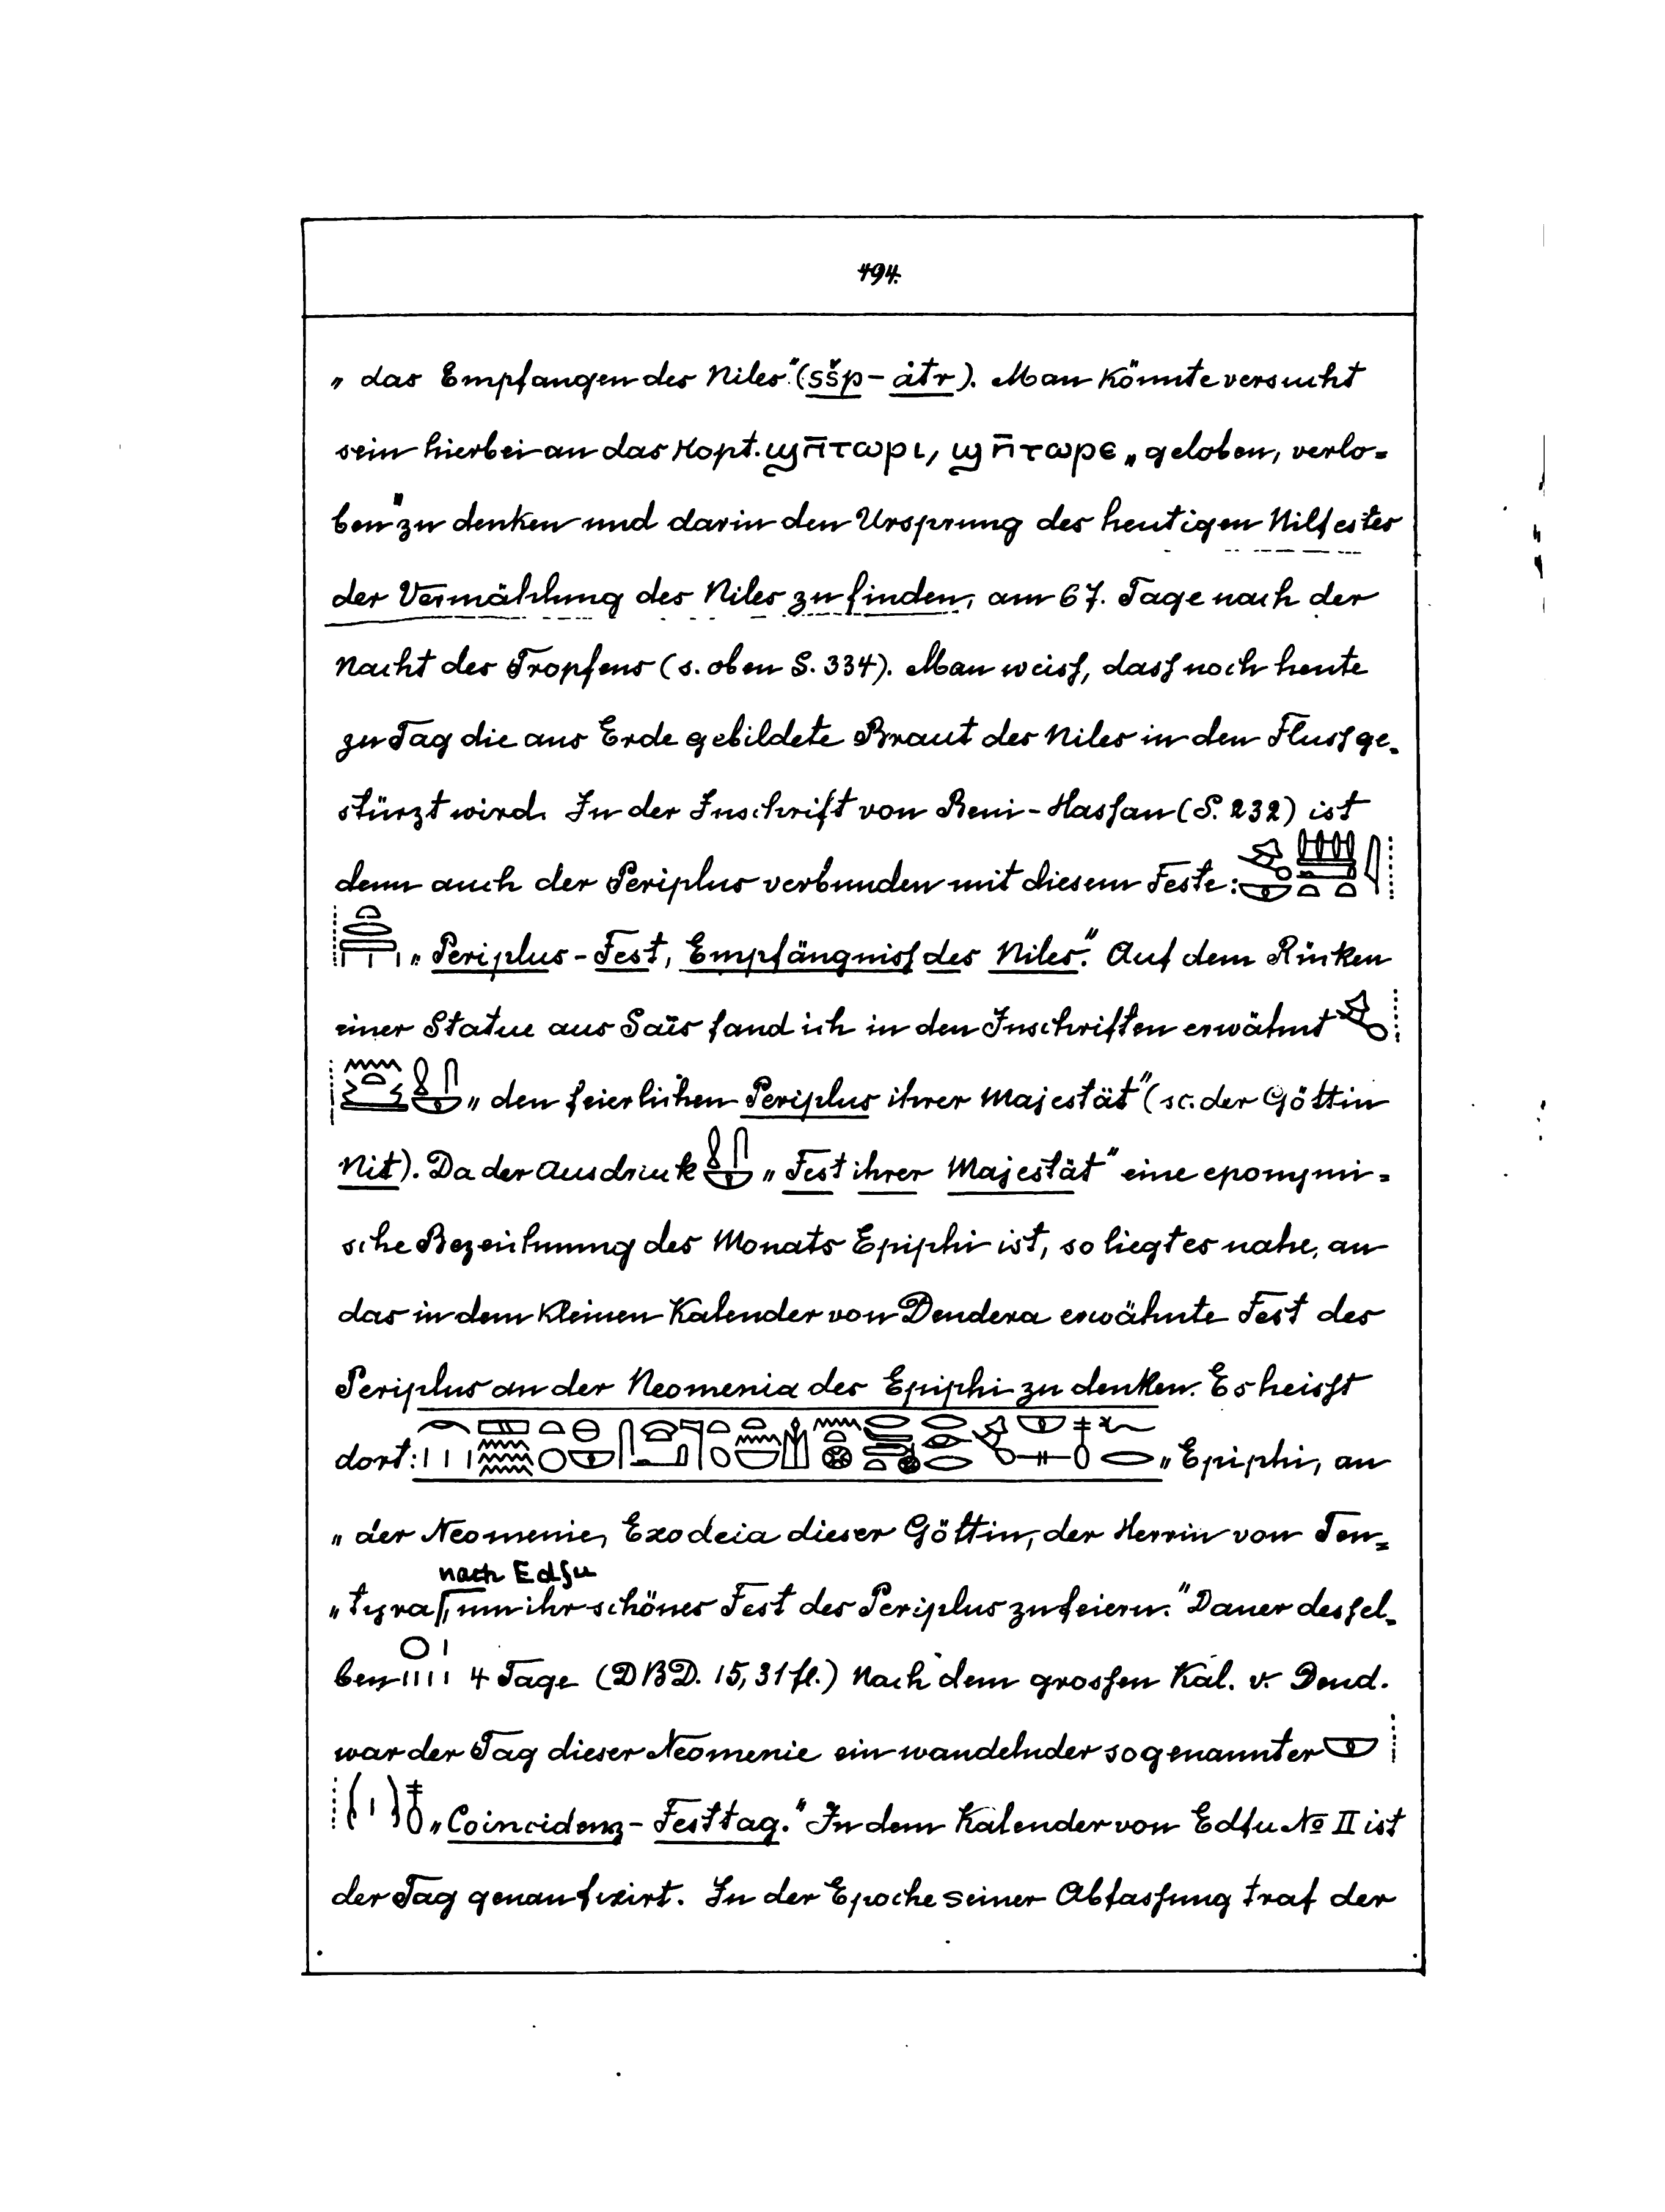 494.
„ das Empfangen des Niles." (sšp - åtr). Man könnte versucht
sein hierbei an das Kopt. ϣⲡ̄ⲧⲱⲣⲓ, ϣⲡ̄ⲧⲱⲣⲉ „ geloben, verlo=
ben" zu denken und darin den Ursprung des heutigen Nilfestes
der Vermählung des Niles zu finden, am 67. Tage nach der
Nacht des Tropfens (s. oben S. 334). Man weiss, dass noch heute
zu Tag die aus Erde gebildete Braut des Niles in den Fluss ge-
stürzt wird. In der Inschrift von Beni-Hassan (S. 232) ist
denn auch der Periplus verbunden mit diesem Feste:
„ Periplus-Fest, Empfängniss des Niles." Auf dem Rücken
einer Statue aus Saïs fand ich in den Inschriften erwähnt
„ den feierlichen Periplus ihrer Majestät" (sc. der Göttin
Nit). Da der Ausdruck „ Fest ihrer Majestät" eine eponymi=
sche Bezeichnung des Monats Epiphi ist, so liegt es nahe, an
das in dem kleinen Kalender von Dendera erwähnte Fest des
Periplus an der Neomenia des Epiphi zu denken. Es heisst
dort: „ Epiphi, an
„ der Neomenie, Exodeia dieser Göttin, der Herrin von Ten=
nach Edfu
„ tyra, um ihr schönes Fest des Periplus zu feiern." Dauer dessel-
ben 4 Tage (DBD. 15, 31 fl.) Nach dem grossen Kal. v. Dend.
war der Tag dieser Neomenie ein wandelnder sogenannter
„ Coincidenz-Festtag." In dem Kalender von Edfu No II ist
der Tag genau fixirt. In der Epoche seiner Abfassung traf der